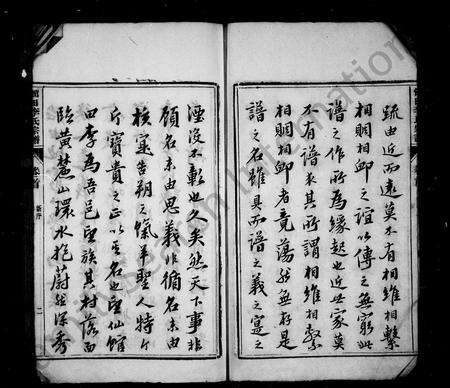 疏由近而遠莫不有相維相繫
相賙相卹之誼以傳之無窮此
譜之作所爲緣起也近世家莫
不有譜求其所謂相維相繫
相賙相卹者竟蕩然無存是
譜之名雖具而譜之義之寔之
湮沒不彰也久矣然天下事非
顧名未由思義非循名未由
核寔告朔之餼羊聖人特斤
斤寶貴之正以其名也望仙館
田李爲吾邑望族其村落面
臨黃麓山環水抱蔚然深秀
館田李氏宗譜
卷首
新序
二